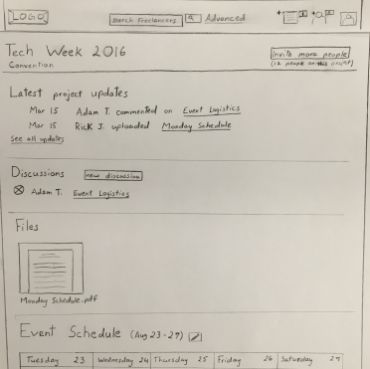 LOGO Search Freelancers Advanced
Tech Week 2016
Convention
invite more people
Latest project updates
Mar 15 Adam T. commented on Event Logistics
Mar 15 Rick J. uploaded Monday Schedule
See all updates
Discussions new discussion
Adam T. Event Logistics
Files
Monday Schedule.pdf
Event Schedule (Aug 23-27)
Tuesday 23 Wednesday 24 Thursday 25 Friday 26 Saturday 27